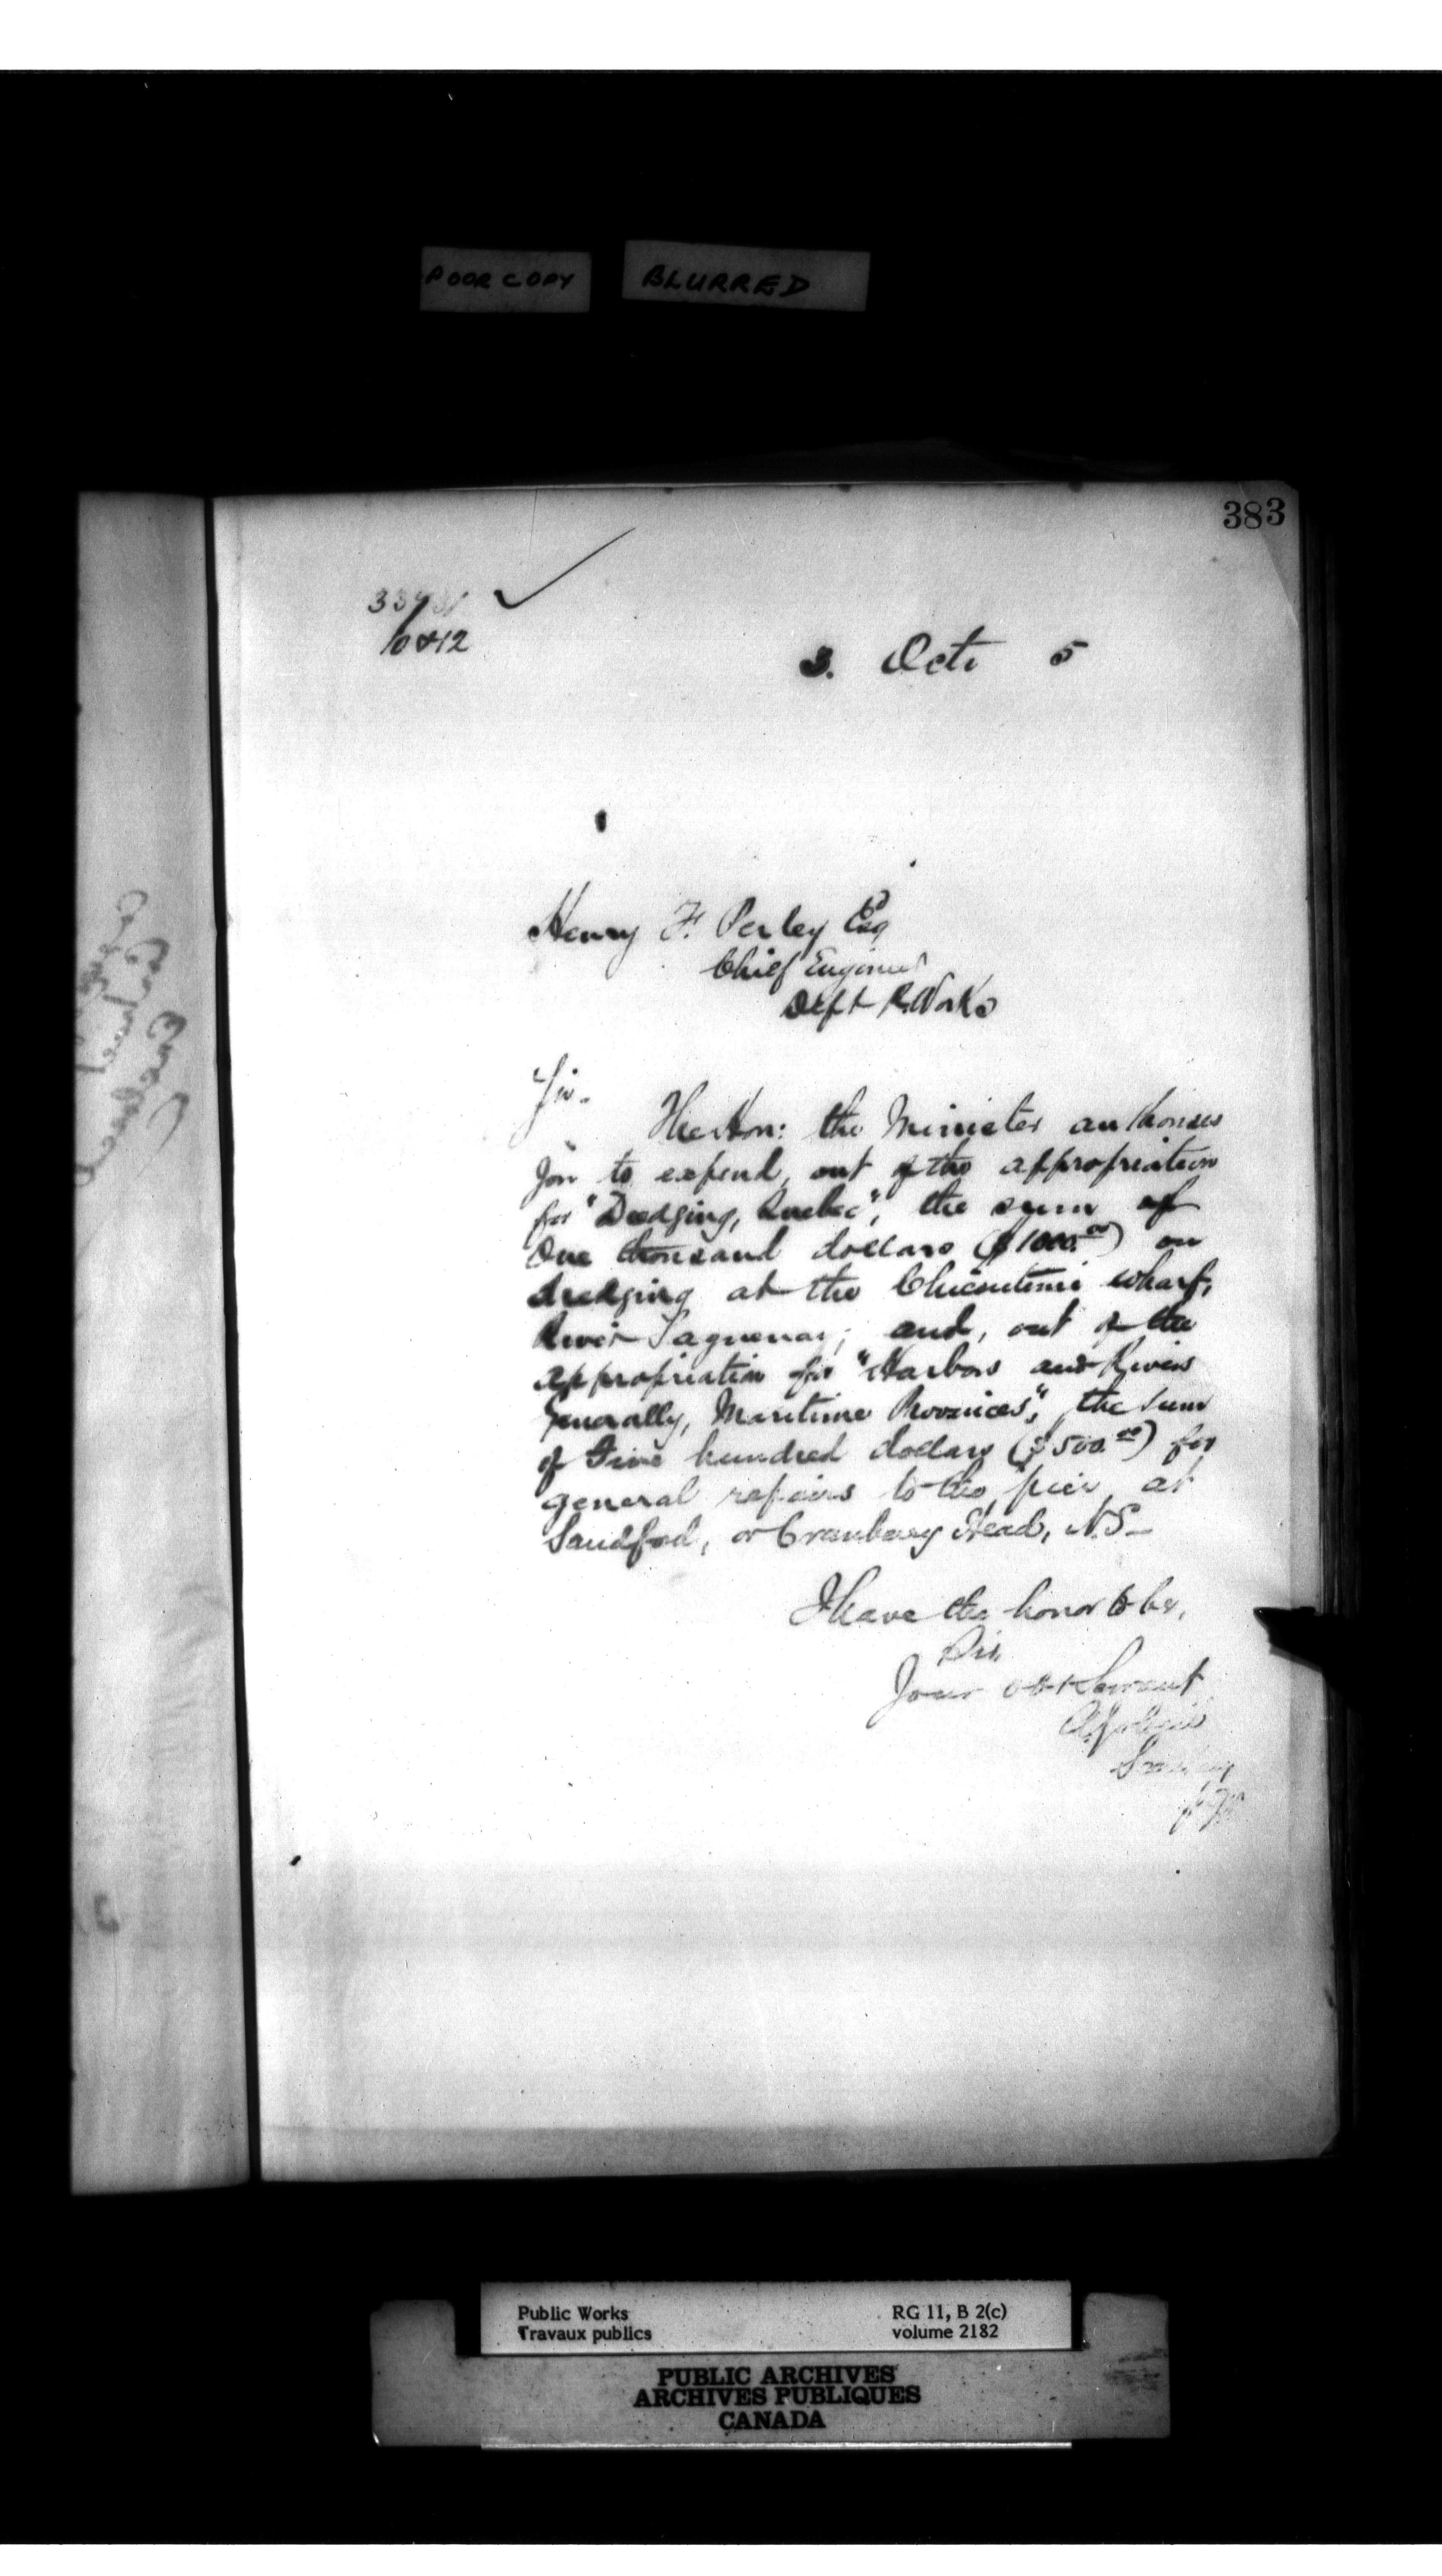 POOR COPY BLURRED
383
10 & 12
3. Oct. 5
Henry F. Perley Esq
Chief Engineer
Dept P. Works
Sir.
The Hon: the Minister authorises
you to expend, out of the appropriation
for "Dredging, Quebec", the sum of
One thousand dollars ($1000.00) on
dredging at the Chicoutimi wharf,
River Saguenay; and, out of the
appropriation for "Harbors and Rivers
Generally, Maritime Provinces", the sum
of Five hundred dollars ($500.00) for
general repairs to the pier at
Sandford, or Cranberry Head, N.S—
I have the honor to be,
Sir,
Your obt Servant
Public Works
Travaux publics
RG 11, B 2(c)
volume 2182
PUBLIC ARCHIVES
ARCHIVES PUBLIQUES
CANADA